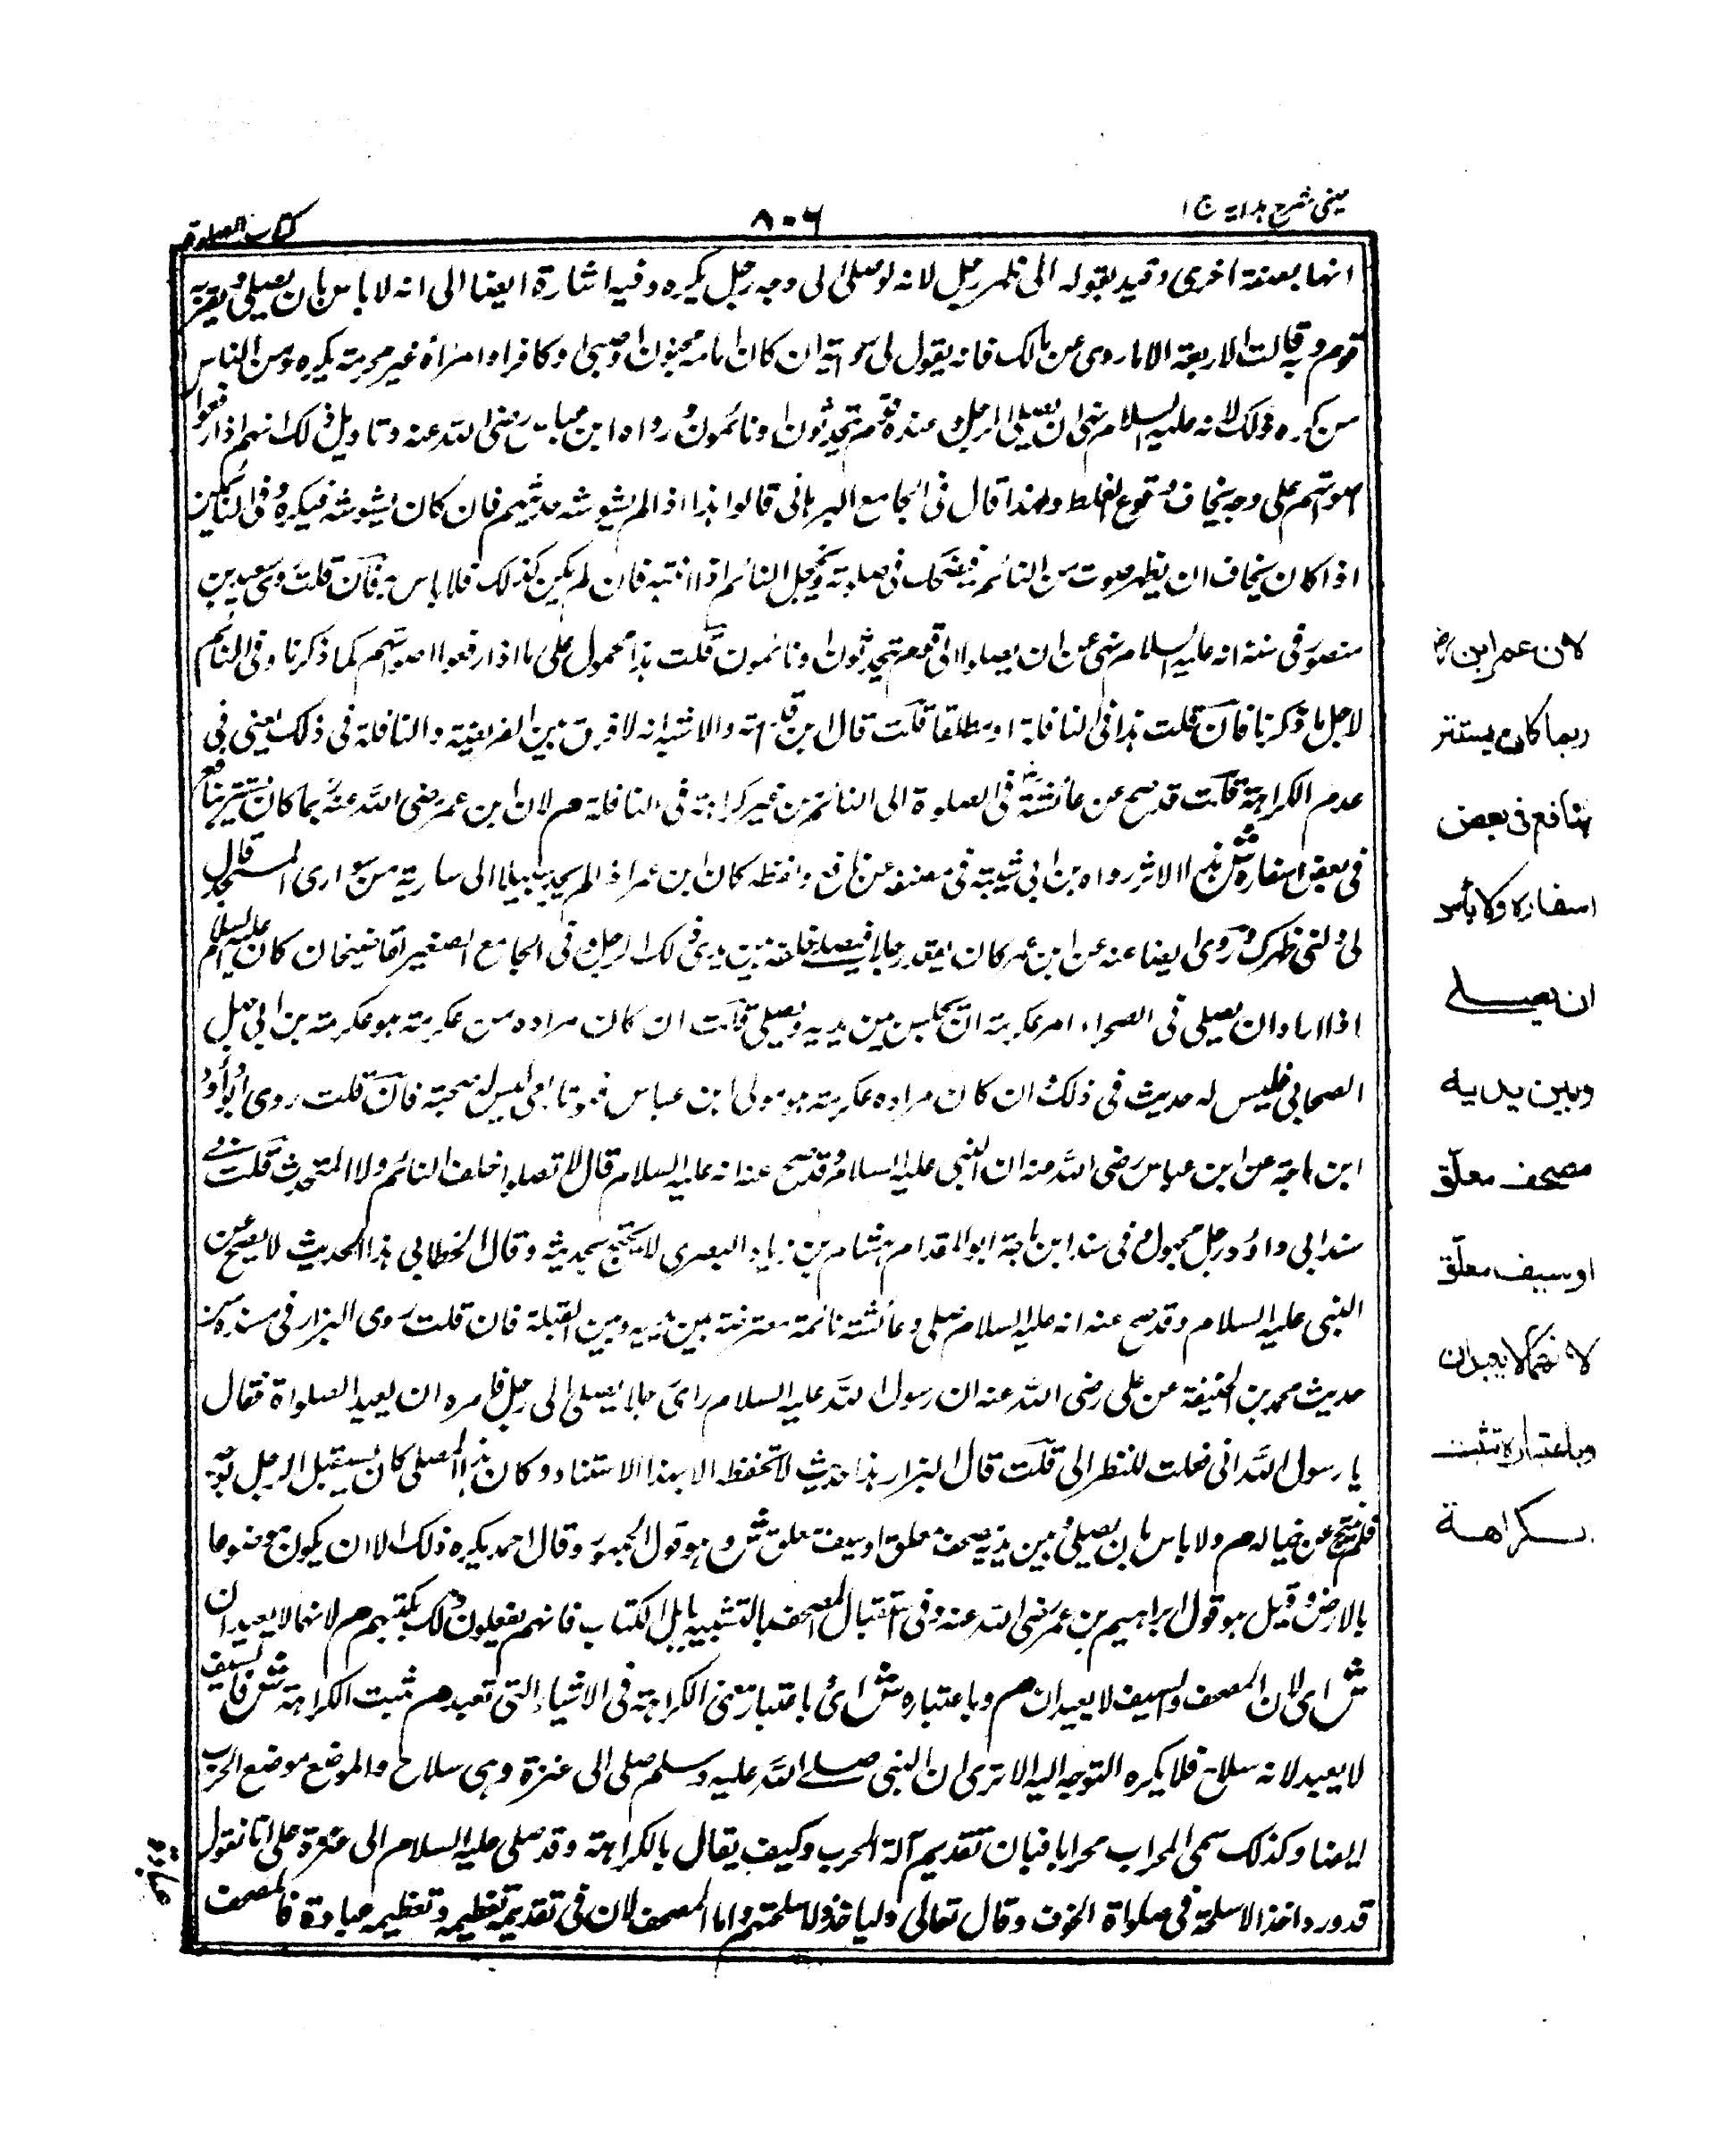 عینی شرح ہدایہ ج ۱
۸۰۶
کتاب الصلوة
انها بصفة اخرى وقيد بقوله الى ظهر رجل لانه لو صلى الى وجه رجل يكره وفيه اشارة ايضا الى انه لا باس بان يصلي وبقربه
قوم وبه قالت الاربعة الا ما روى عن مالك فانه يقول ان كان امامه مجنون او صبى او كافر او امرأة غير محرمة يكره ومن الناس
من كره ذلك لانه عليه السلام نهى ان يصلي الرجل وعنده قوم يتحدثون او نائمون رواه ابن عباس رضى الله عنه وتاويل ذلك انهم اذا رفعوا
اصواتهم على وجه يخاف وقوع الغلط ولهذا قال فى الجامع البرهانى قالوا هذا اذا لم يشوشه حديثهم فان كان يشوشه فيكره وفى النائمين
اذا كان يخاف ان يظهر صوت من النائم فيضحك فى صلوته ويخجل النائم اذا انتبه فان لم يكن كذلك فلا باس به فان قلت روى سعيد بن
منصور فى سننه انه عليه السلام نهى عن ان يصلوا الى قوم يتحدثون او نائمون قلت هذا محمول على ما اذا رفعوا اصواتهم كما ذكرنا وفى النائم
لاجل ما ذكرنا فان قلت هذا فى النافلة او مطلقا قلت قال ابن قدامة والاشبه انه لا فرق بين الفريضة والنافلة فى ذلك يعنى فى
عدم الكراهة قلت قد صح عن عائشة فى الصلوة الى النائم من غير كراهة فى النافلة م لان ابن عمر رضى الله عنه ربما كان يستتر بنافع
فى بعض اسفاره ش هذا الاثر رواه بن ابى شيبة فى مصنفه عن نافع ولفظه كان ابن عمر اذا لم يجد سبيلا الى سارية من سوارى المسجد قال
لى ولنى ظهرك وروى ايضا عنه عن ابن عمر كان يقعد رجلا فيصلى خلفه بين يدى ذلك الرجل وفى الجامع الصغير لقاضيخان كان عليه السلام
اذا اراد ان يصلى فى الصحراء امر عكرمة ان يجلس بين يديه ويصلى قلت ان كان مراده من عكرمة هو عكرمة بن ابى جهل
الصحابى فليس له حديث فى ذلك وان كان مراده عكرمة هو مولى ابن عباس فهو تابعى ليس له صحبة فان قلت روى ابو داؤد
ابن ماجة عن ابن عباس رضى الله عنه ان النبى عليه السلام وقد صح عنه انه عليه السلام قال لا تصلوا خلف النائم ولا المتحدث قلت فى
سند ابى داؤد رجل مجهول وفى سند ابن ماجة ابو المقدام هشام بن زياد البصرى لا يحتج بحديثه وقال الخطابى هذا الحديث لا يصح عن
النبى عليه السلام وقد صح عنه انه عليه السلام صلى وعائشة نائمة معترضة بين يديه وبين القبلة فان قلت روى البزار فى مسنده من
حديث محمد بن الحنيفة عن على رضى الله عنه ان رسول الله عليه السلام راى رجلا يصلى الى رجل فامره ان يعيد الصلواة فقال
يا رسول الله انى فعلت للنظر الى قلت قال البزار هذا حديث لا تحفظ الا بهذا الاستناد وكان هذا المصلى كان يستقبل الرجل بوجه
فلم يتنح عن خياله م ولا باس بان يصلى وبين يديه مصحف معلق او سيف معلق ش وهو قول الجمهور وقال احمد يكره ذلك الا ان يكون موضوعا
بالارض وقيل هو قول ابراهيم بن عمر رضى الله عنه وفى استقبال المصحف بالتشبيه باهل الكتاب فانهم يفعلون ذلك بكتبهم م لانهما لا يعبدان
ش اى لان المصحف والسيف لا يعبدان م وباعتباره ش اى باعتبار معنى الكراهة فى الاشياء التى تعبد م ثبت الكراهة ش فالسيف
لا يعبد لانه سلاح فلا يكره التوجه اليه الا ترى ان النبى صلى الله عليه وسلم صلى الى عنزة وهى سلاح والموضع موضع الحرب
ايضا وكذلك سمى المحراب محرابا فبان تقديم آلة الحرب وكيف يقال بالكراهة وقد صلى عليه السلام الى عنزة على انا نقول
قد ورد اخذ الاسلحة فى صلواة الخوف وقال تعالى وليا خذوا اسلحتهم واما المصحف لان فى تقديمه تعظيمه وتعظيمه عبادة فالمصحف
لان عمر ابن رض
ربما كان يستتر
بنافع فى بعض
اسفاره ولا بأس
ان يصلے
وبين يديه
مصحف معلّق
او سيف معلّق
لانهما لا يعبدان
وباعتباره تثبت
الكراهة